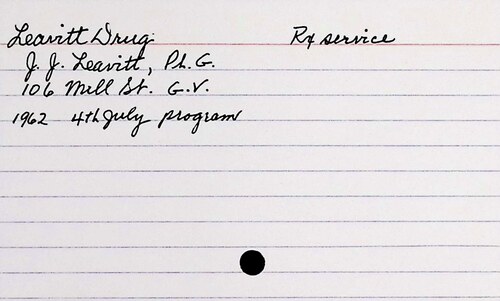 Leavitt Drug Rx service
J. J. Leavitt, Ph.G.
106 Mill St. G.V.
1962 4th July program